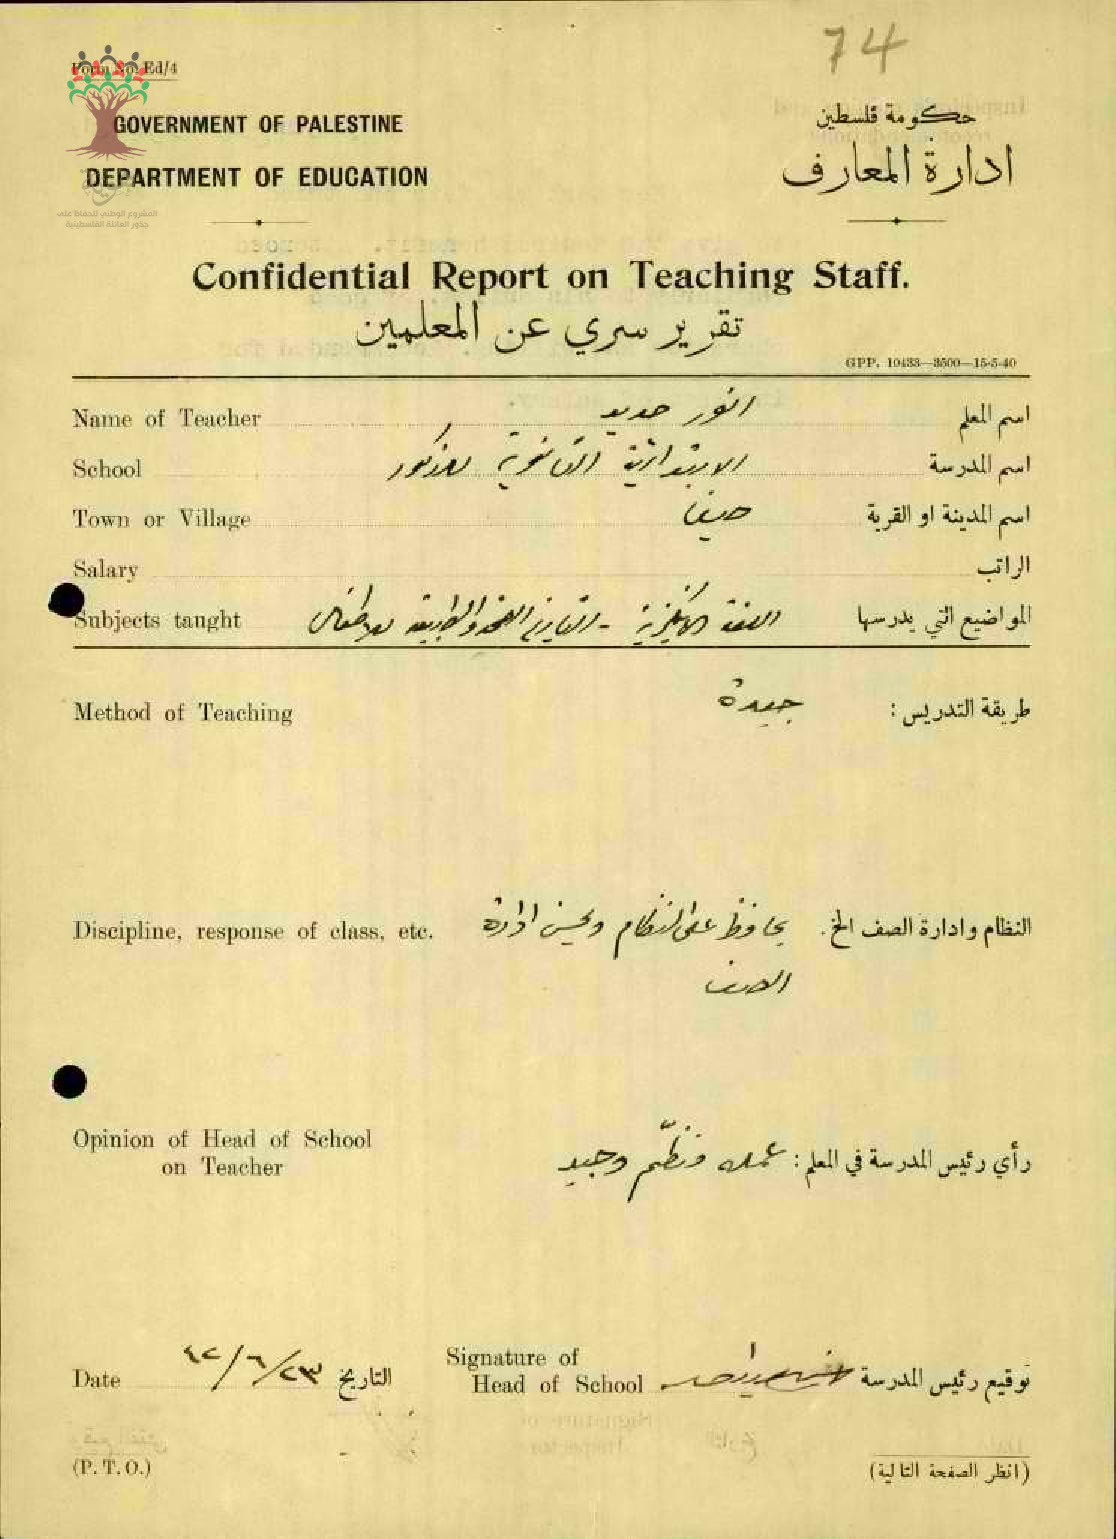 74
Form No. Ed/4
GOVERNMENT OF PALESTINE
DEPARTMENT OF EDUCATION
حكومة فلسطين
ادارة المعارف
المشروع الوطني للحفاظ على
جذور العائلة الفلسطينية
Confidential Report on Teaching Staff.
تقرير سري عن المعلمين
GPP. 10433—3500—15-5-40
Name of Teacher انور حديد اسم المعلم
School الابتدائية الثانوية للذكور اسم المدرسة
Town or Village حيفا اسم المدينة او القرية
Salary الراتب
Subjects taught اللغة الانكليزية - للاطفال المواضيع التي يدرسها
Method of Teaching جيدة طريقة التدريس :
Discipline, response of class, etc. يحافظ على النظام ويحسن ادارة النظام وادارة الصف الخ.
الصف
Opinion of Head of School
on Teacher
رأي رئيس المدرسة في المعلم : عمله منظّم وجيد
Date ٤٢/٦/٢٣ التاريخ
Signature of
Head of School توقيع رئيس المدرسة
(P. T. O.) (انظر الصفحة التالية)